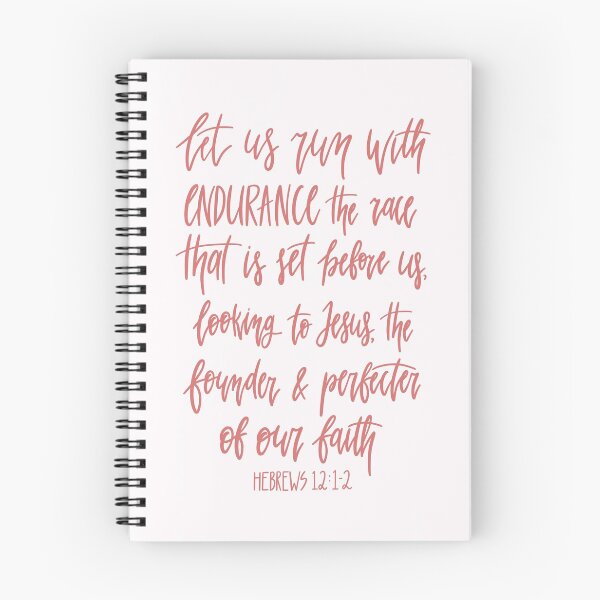 let us run with
ENDURANCE the race
that is set before us,
looking to Jesus, the
founder & perfecter
of our faith
HEBREWS 12:1-2